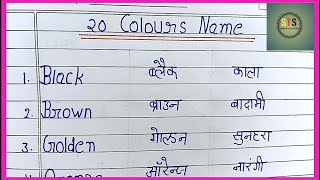 20 Colours Name
STS
1. Black ब्लैक काला
2. Brown ब्राउन बादामी
3. Golden गोल्डन सुनहरा
ऑरेन्ज नारंगी